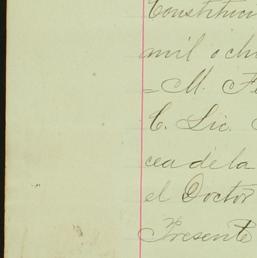 Constitucio
mil och
= M. F
C. Lic.
cea de la
el Doctor
Presente